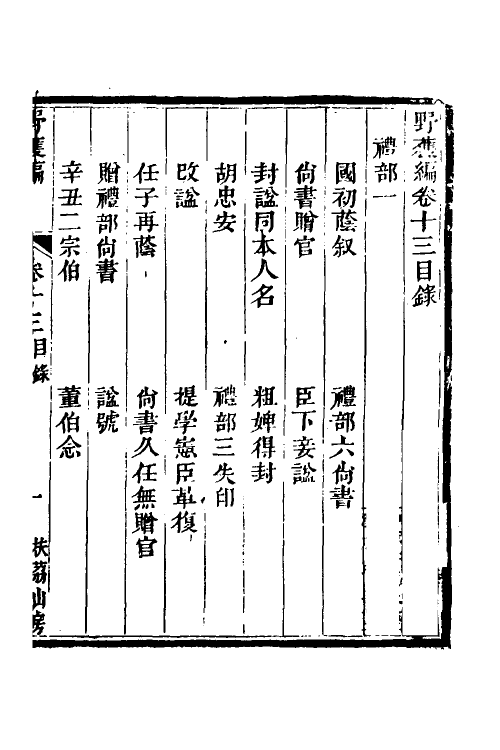 野獲編卷十三目錄
禮部一
國初蔭叙
禮部六尚書
尚書贈官
臣下妾諡
封諡同本人名
粗婢得封
胡忠安
禮部三失印
改諡
提學憲臣革復
任子再蔭
尚書久任無贈官
贈禮部尚書
諡號
辛丑二宗伯
董伯念
野獲編
卷十三目錄
一
扶荔山房